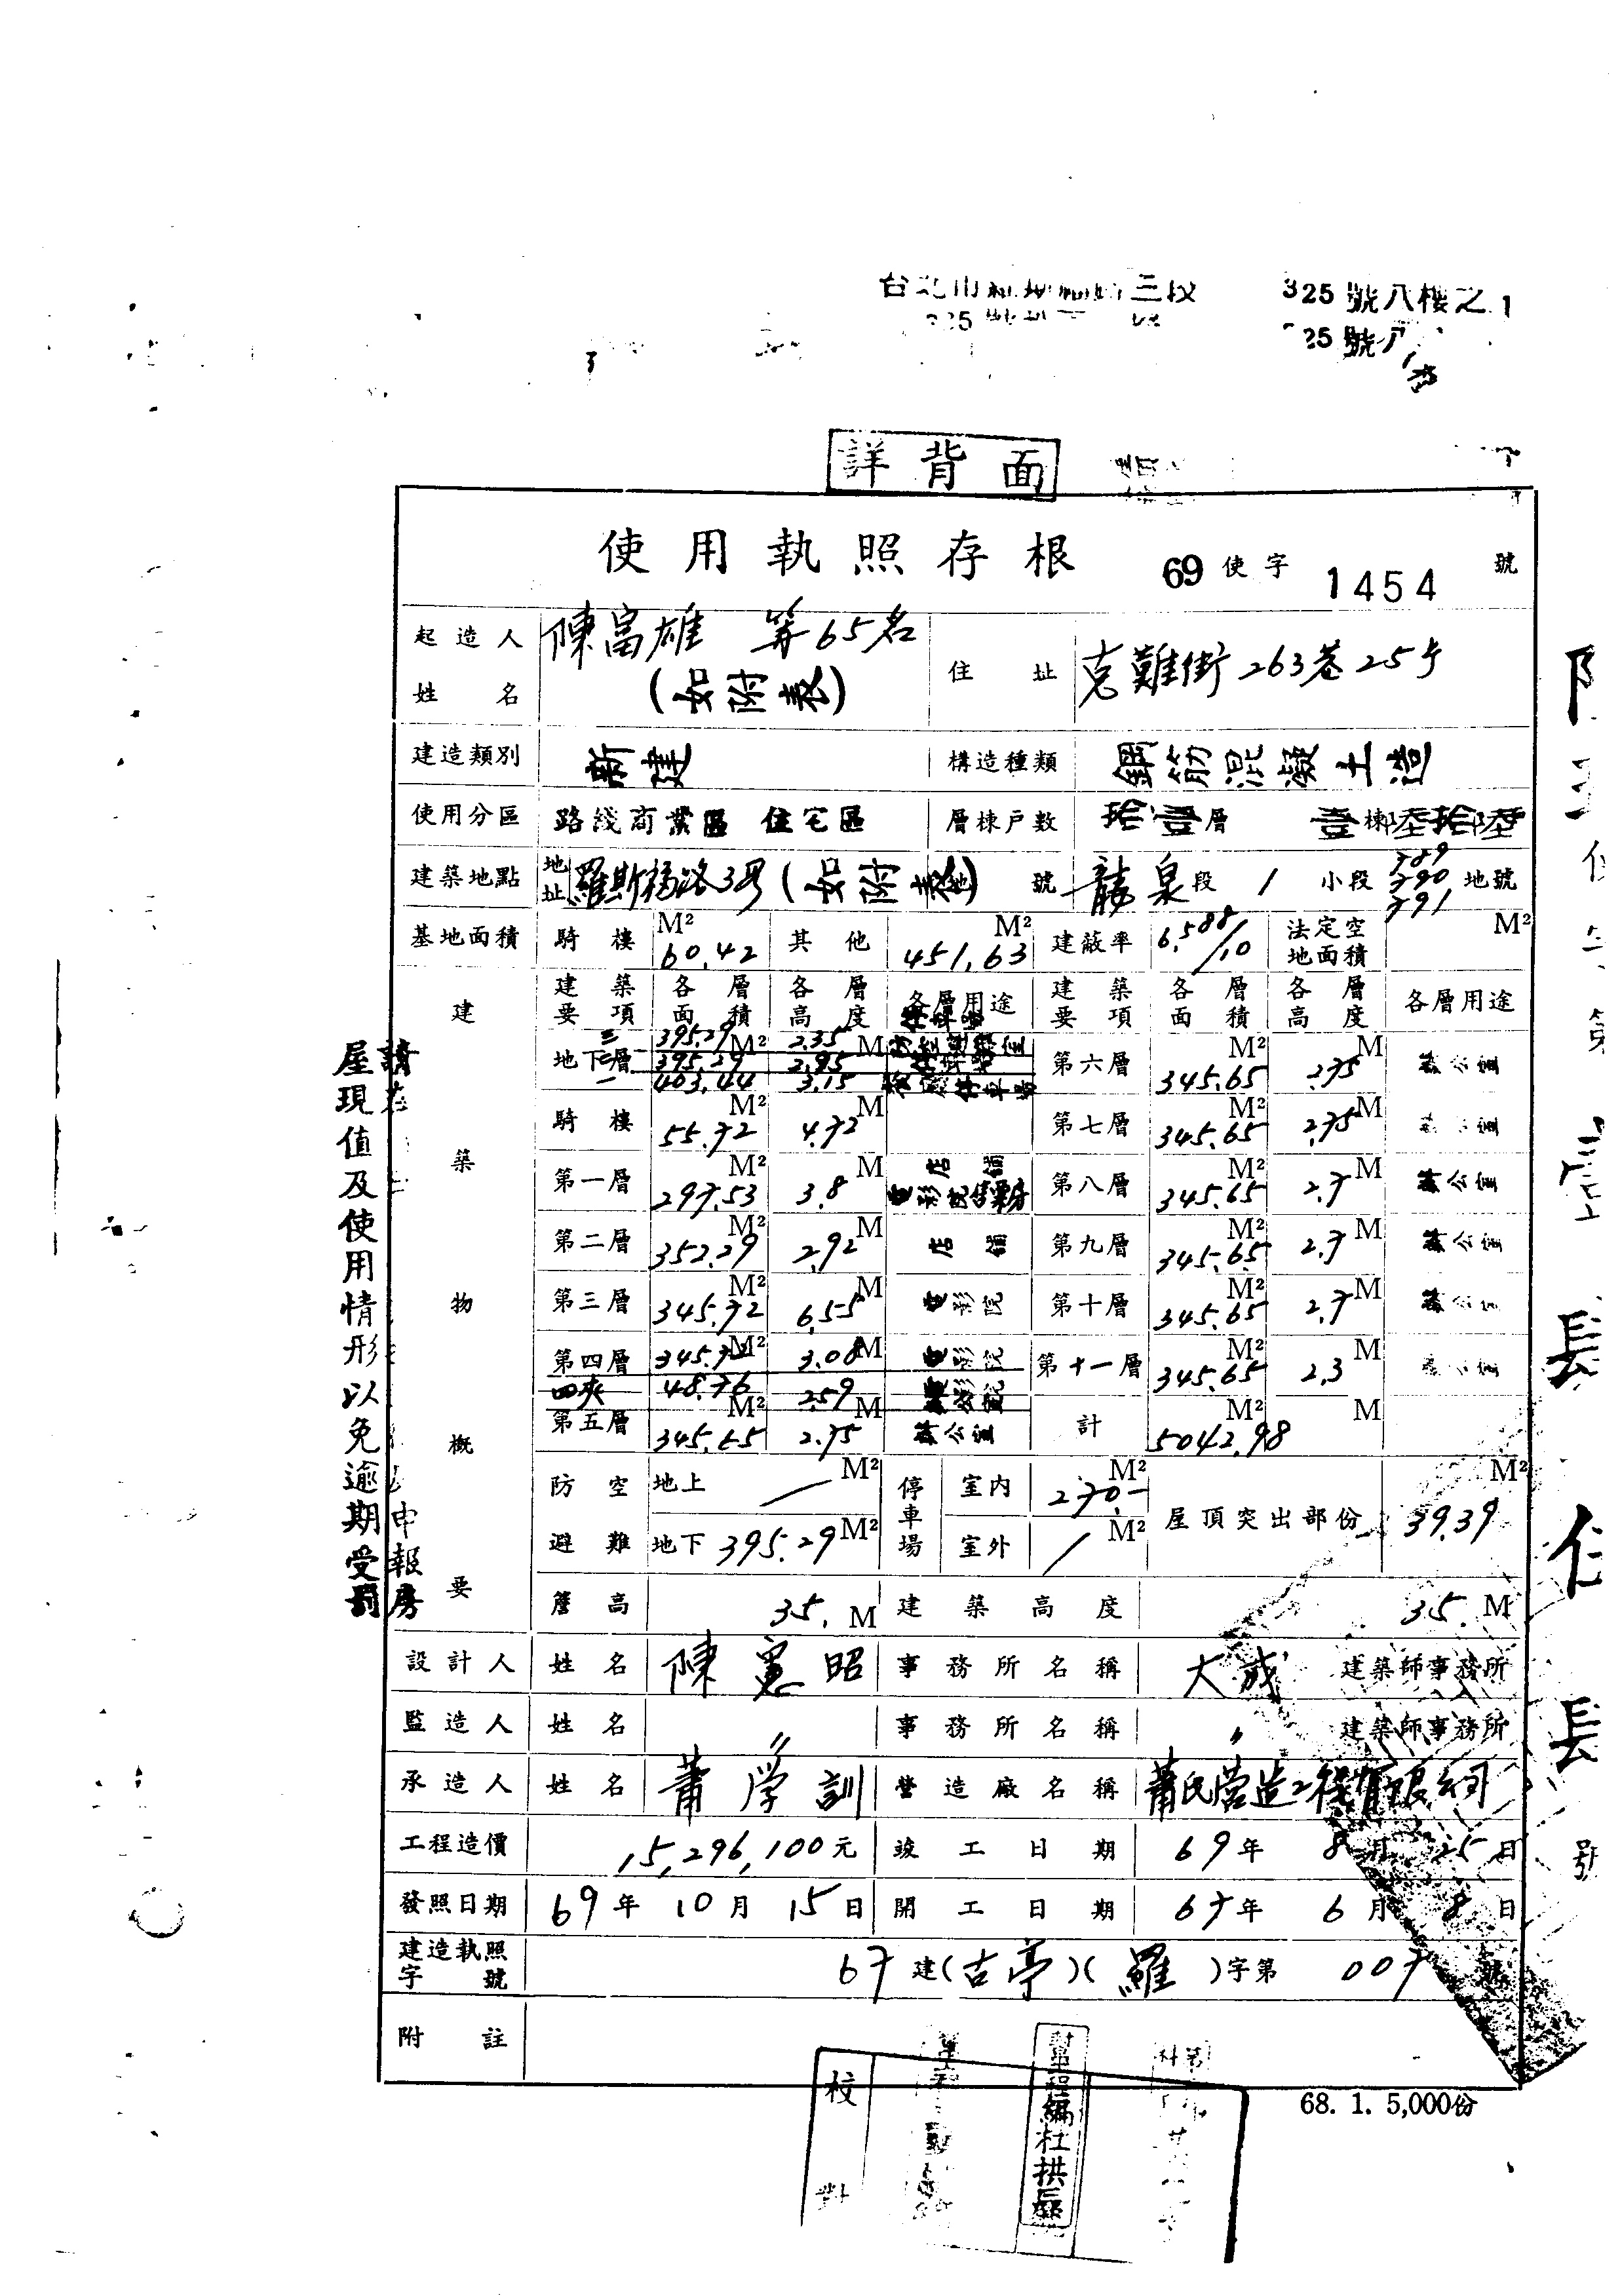 325號八樓之1
詳背面
使用執照存根 69使字 1454 號
起造人姓名 陳富雄 等65名 (如附表) 住址 克難街263巷25号
建造類別 新建 構造種類 鋼筋混凝土造
使用分區 路綫商業區 住宅區 層棟戶數 拾壹層 壹棟陸拾陸
建築地點 地址 羅斯福路3段(如附表) 地號 龍泉段 1 小段 389 390 391 地號
基地面積 騎樓 60.42 M² 其他 451.63 M² 建蔽率 6.588/10 法定空地面積 M²
建築物概要
建築要項 各層面積 各層高度 各層用途 建築要項 各層面積 各層高度 各層用途
地下三層 395.29 M² 2.35 M
二 395.29 2.95
一 403.44 3.15
第六層 345.65 M² 2.75 M 辦公室
騎樓 55.72 M² 4.72 M 第七層 345.65 M² 2.75 M
第一層 297.53 M² 3.8 M 店舖 電影院售票房 第八層 345.65 M² 2.7 M 辦公室
第二層 352.29 M² 2.92 M 店舖 第九層 345.65 M² 2.7 M 辦公室
第三層 345.72 M² 6.55 M 電影院 第十層 345.65 M² 2.7 M 辦公室
第四層 345.72 M² 3.08 M 電影院 第十一層 345.65 M² 2.3 M
四夾 48.76 2.59 電影院
第五層 345.65 M² 2.75 M 辦公室 計 5042.98 M² M
防空避難 地上 / M² 停車場 室內 270.- M² 屋頂突出部份 39.39 M²
地下 395.29 M² 室外 / M²
簷高 35. M 建築高度 35. M
設計人 姓名 陳憲昭 事務所名稱 大成 建築師事務所
監造人 姓名 〃 事務所名稱 〃 建築師事務所
承造人 姓名 蕭學訓 營造廠名稱 蕭氏營造工程有限公司
工程造價 15,296,100元 竣工日期 69年 8月 25日
發照日期 69年 10月 15日 開工日期 67年 6月 8日
建造執照字號 67建(古亭)(羅)字第 007 號
附註
68. 1. 5,000份
校對
屋現值及使用情形以免逾期受罰